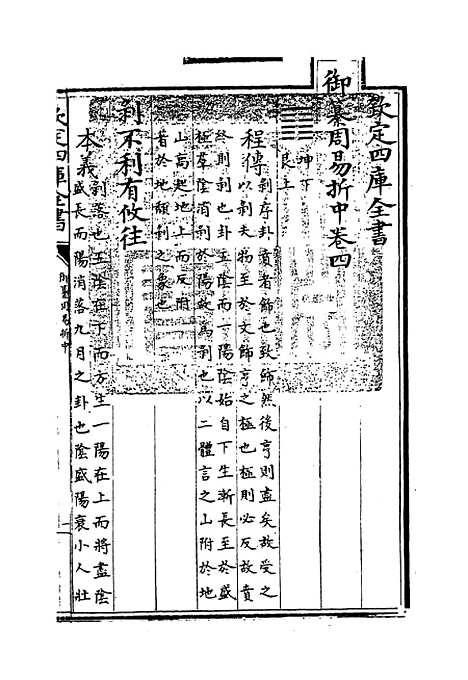 欽定四庫全書
御纂周易折中卷四
坤下
艮上
程傳剝序卦賁者飾也致飾然後亨則盡矣故受之
以剝夫物至於文飾亨之極也極則必反故賁
終則剝也卦五陰而一陽陰始自下生漸長至於盛
極羣陰消剝於陽故為剝也以二體言之山附於地
山高起地上而反附
著於地頽剝之象也
剝不利有攸往
本義剝落也五陰在下而方生一陽在上而將盡陰
盛長而陽消落九月之卦也陰盛陽衰小人壯
欽定四庫全書
御纂周易折中
一